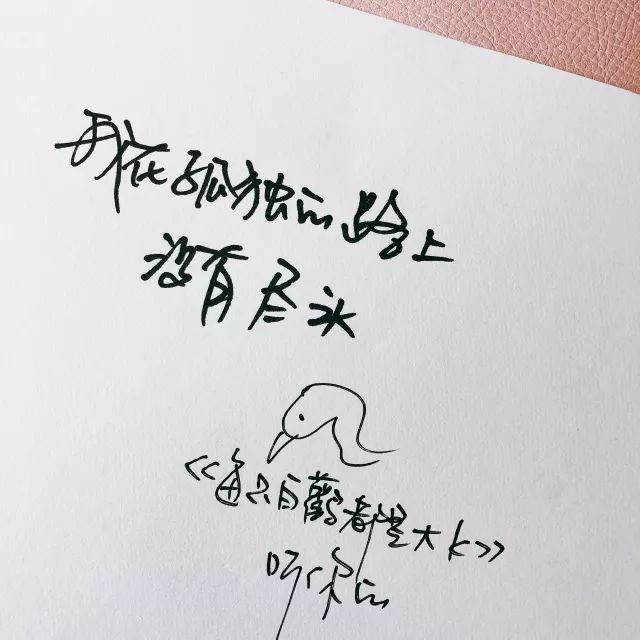 我在孤独的路上
没有尽头
《每只白都大》
听你的